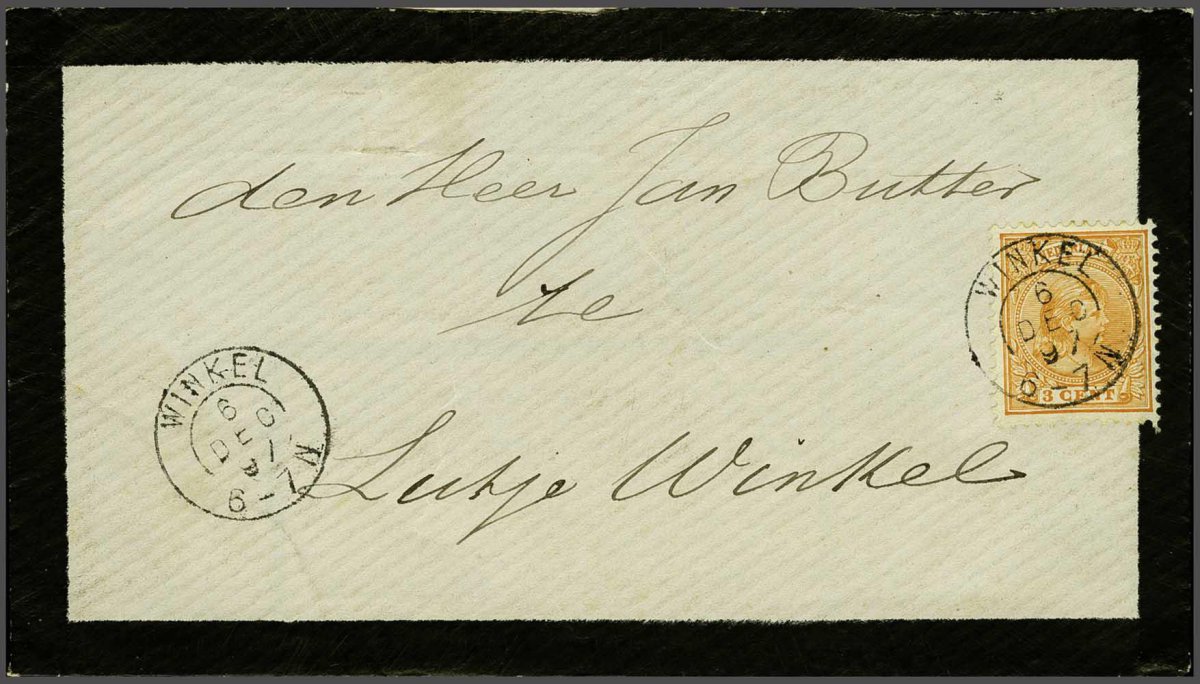 den Heer Jan Butter
te
Lutje Winkel
WINKEL
6
DEC
97
6-7 N
3 CENT
WINKEL
6
DEC
97
6-7 N